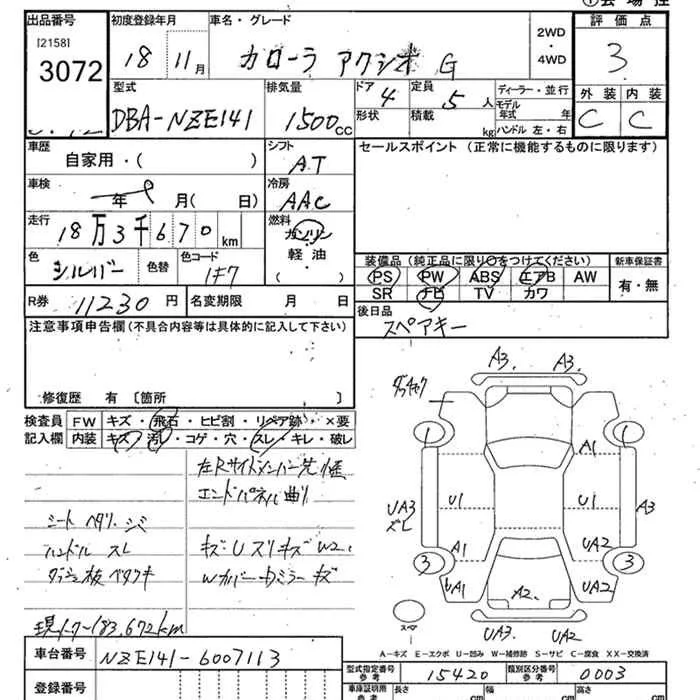 出品番号 初度登録年月 車名・グレード 評価点
[2158]
3072 18 11月 カローラ アクシオ G 2WD・4WD 3
型式 排気量 ドア 4 定員 5人 ディーラー・並行 外装 内装
DBA-NZE141 1500cc 形状 積載 kg モデル年式 年 C C
ハンドル 左・右
車歴 シフト セールスポイント (正常に機能するものに限ります)
自家用・( ) AT
車検 冷房
年 月( 日) AAC
走行 燃料
18万3千670km ガソリン
色 色替 色コード 軽油
シルバー 1F7 ( )
装備品(純正品に限り○をつけてください) 新車保証書
PS PW ABS エアB AW 有・無
SR ナビ TV カワ
R券 11230円 名変期限 月 日 後日品
スペアキー
注意事項申告欄(不具合内容等は具体的に記入して下さい)
修復歴 有 〔箇所 〕
検査員 FW キズ・飛石・ヒビ割・リペア跡・×要
記入欄 内装 キズ・汚レ・コゲ・穴・スレ・キレ・破レ
左Rサイドメンバー先
エンドパネル曲り
シート ヘタリ・シミ
ハンドル スレ キズU スリキズ W2
ダッシュ板 ベタツキ Wカバー・Dミラー キズ
現メーター183,672km
A3. A3.
1 1
A1
UA3 U1 U1 A3
A1 UA2
3 3
UA1 A2. UA2
UA3. UA2
スペア
A-キズ E-エクボ U-凹み W-補修跡 S-サビ C-腐食 XX-交換済
車台番号 NZE141-6007113
型式指定番号 参考 15420 類別区分番号 参考 0003
登録番号 車庫証明用 参考 長さ cm 幅 cm 高さ cm